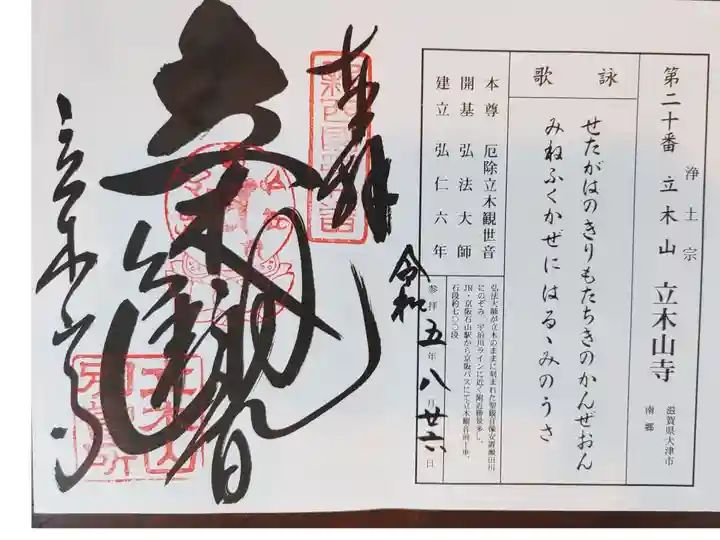 第二十番 浄土宗 立木山 立木山寺 滋賀県大津市南郷
詠歌
せたがはのきりもたちきのかんぜおん
みねふくかぜにはるゝみのうさ
本尊 厄除立木観世音
開基 弘法大師
建立 弘仁六年
弘法大師が立木のままに刻まれた聖観音像安置瀬田川
にのぞみ、宇治川ラインに近く附近勝景多し。
JR・京阪石山駅から京阪バスにて立木観音前下車、
石段約七〇〇段
参拝 令和五年八月廿六日
奉拝
立木観世音
立木山寺